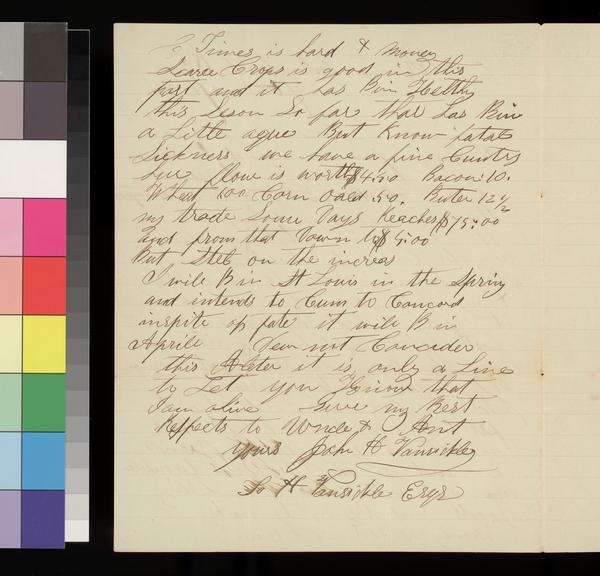 Times is hard & money
Scarce Crops is good in this
part and it has Bin Helthy
this Seson So far thar has Bin
a Little ague But Know fatal
Sickness we have a fine Cuntry
flour is worth $4.50 Bacon 10.
Wheat 100 Corn Oald .50. Buter 12 1/2
my trade Some Days Reaches $75.00
and from that Down to $5.00
But Stil on the increas
I will B in St Louis in the Spring
and intends to Cum to Concord
inspite of fate it will B in
Aprile
this Aleter it is only a Line
to Let you Know that
I am alive Give my Best
Respects to Uncle & Ant
yours John H Vansickle
To H Vansickle Esqr